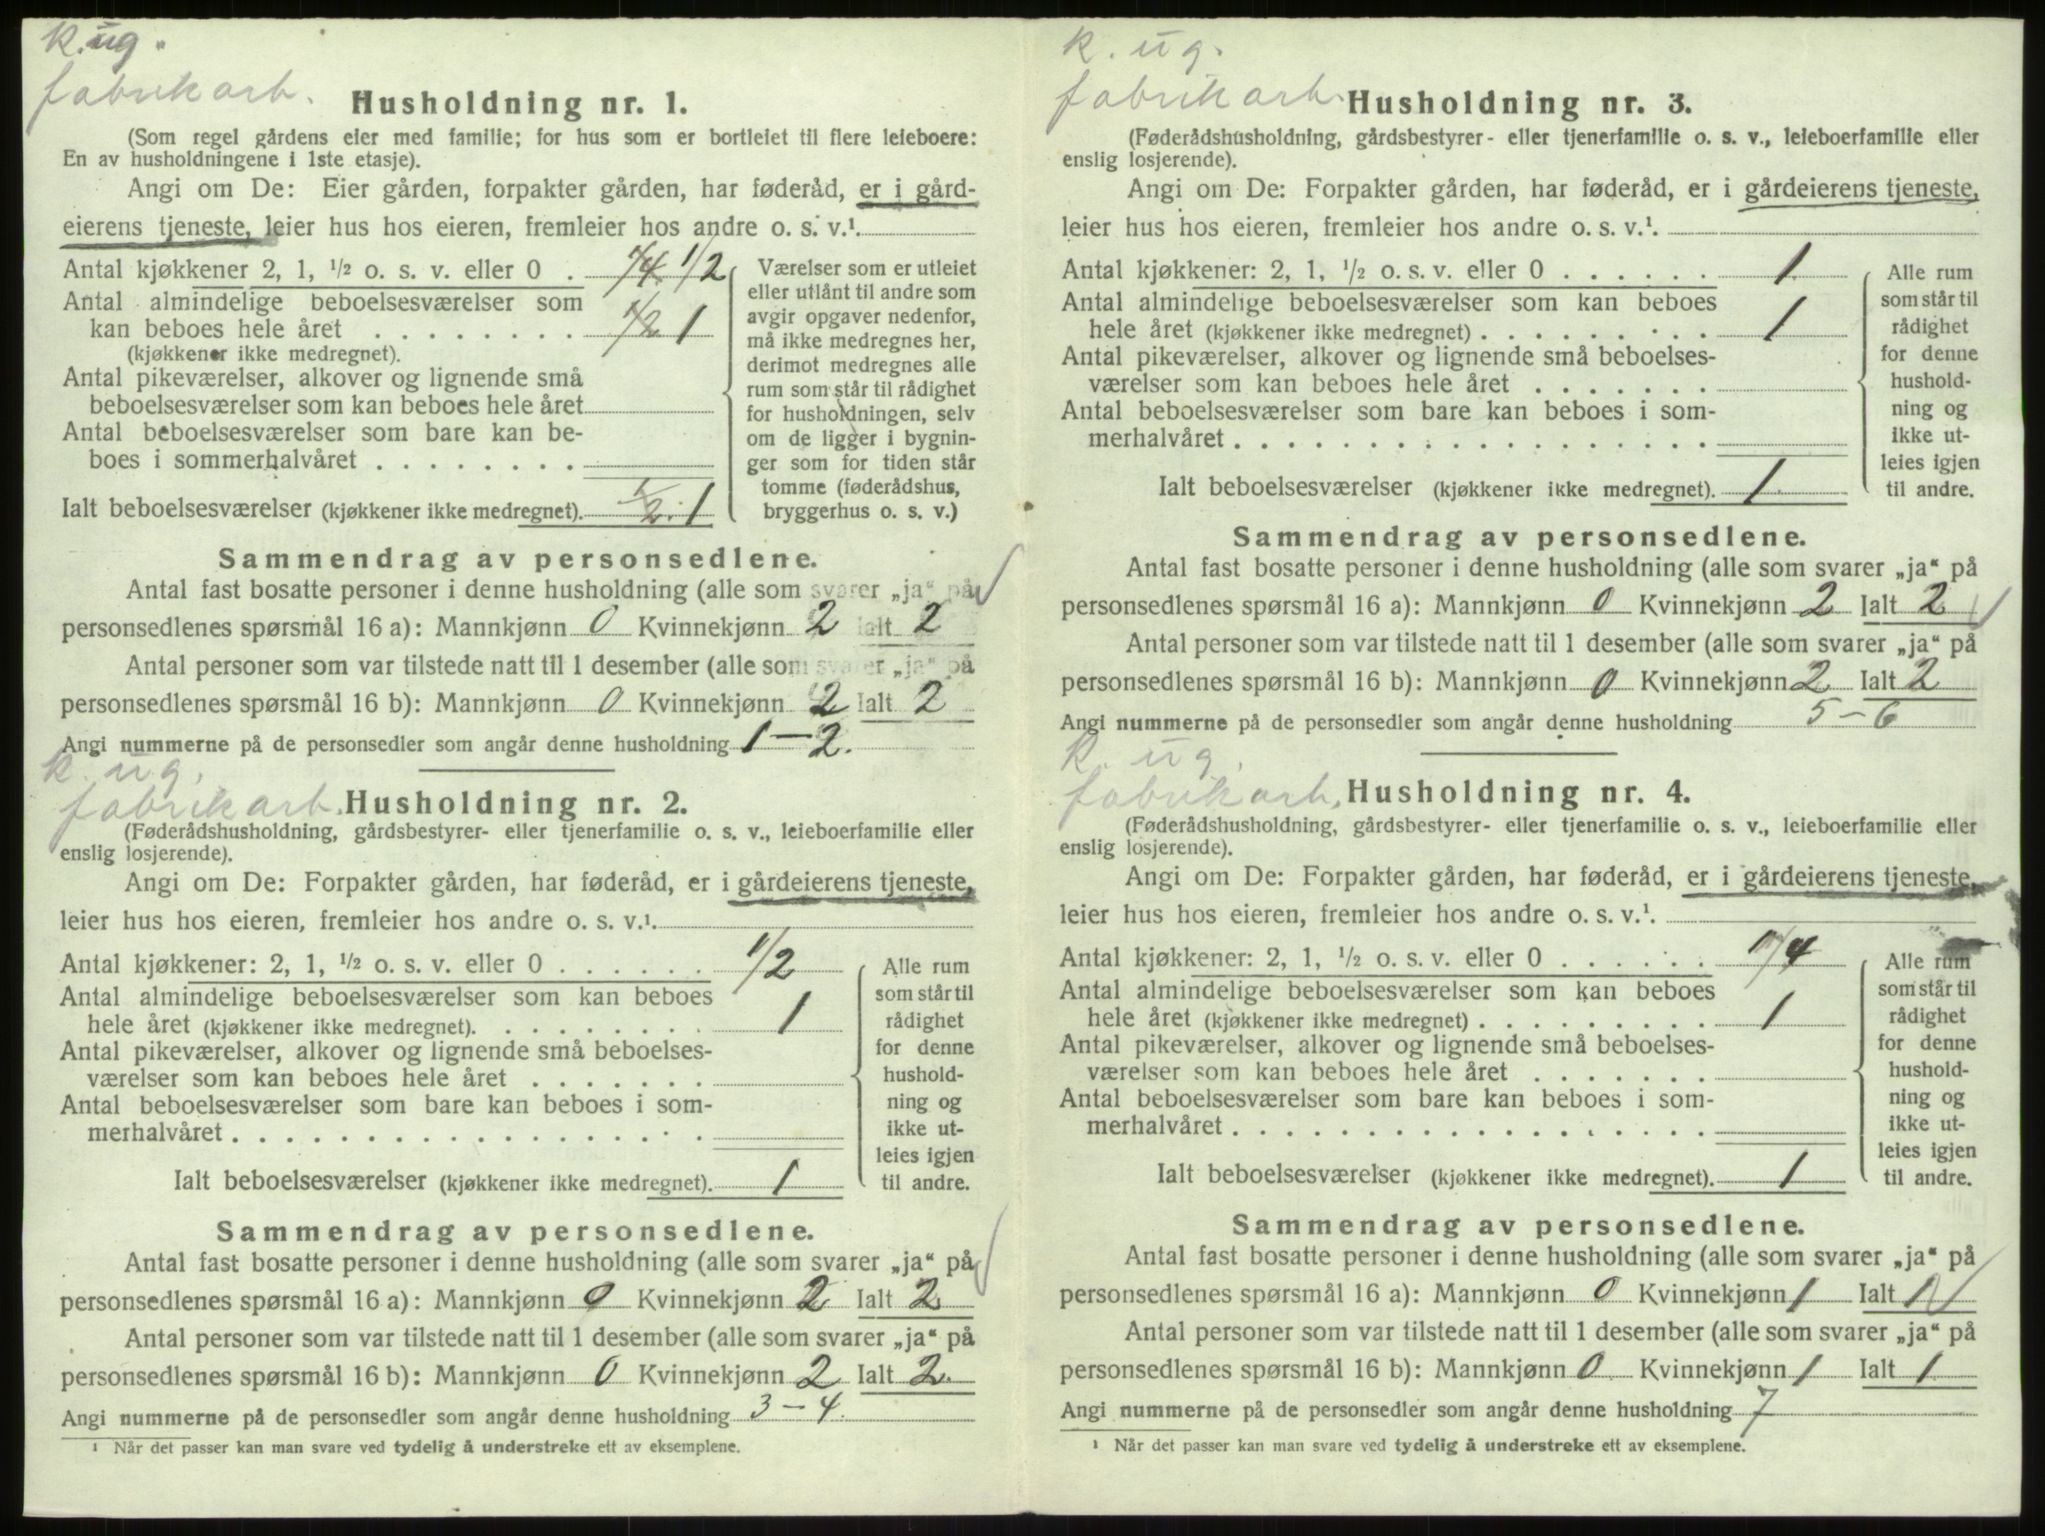 k. ug.
fabrikarb. Husholdning nr. 1.
(Som regel gårdens eier med familie; for hus som er bortleiet til flere leieboere:
En av husholdningene i 1ste etasje).
Angi om De: Eier gården, forpakter gården, har føderåd, er i gård-
eierens tjeneste, leier hus hos eieren, fremleier hos andre o. s. v.¹
Antal kjøkkener 2, 1, ½ o. s. v. eller 0 . 1/4 1/2
Antal almindelige beboelsesværelser som
kan beboes hele året . . . . . . . . 1/2 1
(kjøkkener ikke medregnet).
Antal pikeværelser, alkover og lignende små
beboelsesværelser som kan beboes hele året
Antal beboelsesværelser som bare kan be-
boes i sommerhalvåret . . . . . . . .
Ialt beboelsesværelser (kjøkkener ikke medregnet). 1/2. 1
Værelser som er utleiet
eller utlånt til andre som
avgir opgaver nedenfor,
må ikke medregnes her,
derimot medregnes alle
rum som står til rådighet
for husholdningen, selv
om de ligger i bygnin-
ger som for tiden står
tomme (føderådshus,
bryggerhus o. s. v.)
Sammendrag av personsedlene.
Antal fast bosatte personer i denne husholdning (alle som svarer „ja“ på
personsedlenes spørsmål 16 a): Mannkjønn 0 Kvinnekjønn 2 Ialt 2
Antal personer som var tilstede natt til 1 desember (alle som svarer „ja“ på
personsedlenes spørsmål 16 b): Mannkjønn 0 Kvinnekjønn 2 Ialt 2
Angi nummerne på de personsedler som angår denne husholdning 1 – 2.
k. ug.
fabrikarb. Husholdning nr. 2.
(Føderådshusholdning, gårdsbestyrer- eller tjenerfamilie o. s. v., leieboerfamilie eller
enslig losjerende).
Angi om De: Forpakter gården, har føderåd, er i gårdeierens tjeneste,
leier hus hos eieren, fremleier hos andre o. s. v.¹.
Antal kjøkkener: 2, 1, ½ o. s. v. eller 0 . . . . . . 1/2
Antal almindelige beboelsesværelser som kan beboes
hele året (kjøkkener ikke medregnet). . . . . . . . . 1
Antal pikeværelser, alkover og lignende små beboelses-
værelser som kan beboes hele året . . . . . . .
Antal beboelsesværelser som bare kan beboes i som-
merhalvåret . . . . . . . . . . . . . . . . . .
Ialt beboelsesværelser (kjøkkener ikke medregnet). 1
Alle rum
som står til
rådighet
for denne
hushold-
ning og
ikke ut-
leies igjen
til andre.
Sammendrag av personsedlene.
Antal fast bosatte personer i denne husholdning (alle som svarer „ja“ på
personsedlenes spørsmål 16 a): Mannkjønn 0 Kvinnekjønn 2 Ialt 2
Antal personer som var tilstede natt til 1 desember (alle som svarer „ja“ på
personsedlenes spørsmål 16 b): Mannkjønn 0 Kvinnekjønn 2 Ialt 2.
Angi nummerne på de personsedler som angår denne husholdning 3 – 4.
¹ Når det passer kan man svare ved tydelig å understreke ett av eksemplene.
k. ug.
fabrikarb. Husholdning nr. 3.
(Føderådshusholdning, gårdsbestyrer- eller tjenerfamilie o. s. v., leieboerfamilie eller
enslig losjerende).
Angi om De: Forpakter gården, har føderåd, er i gårdeierens tjeneste,
leier hus hos eieren, fremleier hos andre o. s. v.¹.
Antal kjøkkener: 2, 1, ½ o. s. v. eller 0 . . . . . . 1.
Antal almindelige beboelsesværelser som kan beboes
hele året (kjøkkener ikke medregnet) . . . . . . . . . 1
Antal pikeværelser, alkover og lignende små beboelses-
værelser som kan beboes hele året . . . . . . .
Antal beboelsesværelser som bare kan beboes i som-
merhalvåret . . . . . . . . . . . . . . . . . .
Ialt beboelsesværelser (kjøkkener ikke medregnet). 1.
Alle rum
som står til
rådighet
for denne
hushold-
ning og
ikke ut-
leies igjen
til andre.
Sammendrag av personsedlene.
Antal fast bosatte personer i denne husholdning (alle som svarer „ja“ på
personsedlenes spørsmål 16 a): Mannkjønn 0 Kvinnekjønn 2 Ialt 2
Antal personer som var tilstede natt til 1 desember (alle som svarer „ja“ på
personsedlenes spørsmål 16 b): Mannkjønn 0 Kvinnekjønn 2 Ialt 2
Angi nummerne på de personsedler som angår denne husholdning 5 – 6
k. ug.
fabrikarb. Husholdning nr. 4.
(Føderådshusholdning, gårdsbestyrer- eller tjenerfamilie o. s. v., leieboerfamilie eller
enslig losjerende).
Angi om De: Forpakter gården, har føderåd, er i gårdeierens tjeneste,
leier hus hos eieren, fremleier hos andre o. s. v.¹.
Antal kjøkkener: 2, 1, ½ o. s. v. eller 0 . . . . . . 1/4
Antal almindelige beboelsesværelser som kan beboes
hele året (kjøkkener ikke medregnet) . . . . . . . . . 1
Antal pikeværelser, alkover og lignende små beboelses-
værelser som kan beboes hele året . . . . . . .
Antal beboelsesværelser som bare kan beboes i som-
merhalvåret . . . . . . . . . . . . . . . . . .
Ialt beboelsesværelser (kjøkkener ikke medregnet). 1
Alle rum
som står til
rådighet
for denne
hushold-
ning og
ikke ut-
leies igjen
til andre.
Sammendrag av personsedlene.
Antal fast bosatte personer i denne husholdning (alle som svarer „ja“ på
personsedlenes spørsmål 16 a): Mannkjønn 0 Kvinnekjønn 1 Ialt 1
Antal personer som var tilstede natt til 1 desember (alle som svarer „ja“ på
personsedlenes spørsmål 16 b): Mannkjønn 0 Kvinnekjønn 1 Ialt 1
Angi nummerne på de personsedler som angår denne husholdning 7
¹ Når det passer kan man svare ved tydelig å understreke ett av eksemplene.